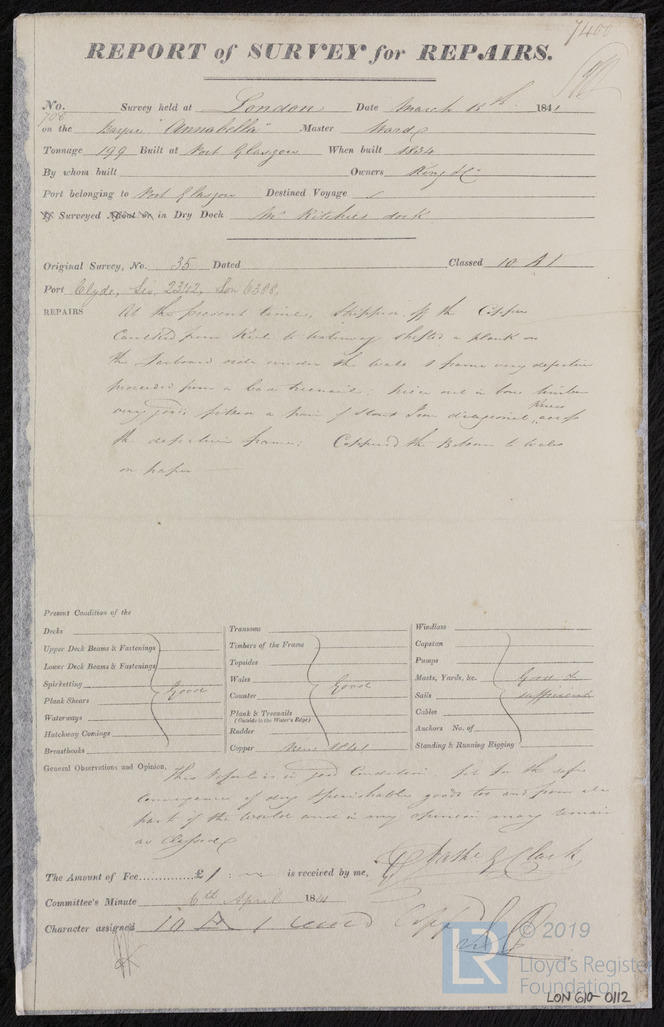 7400
REPORT of SURVEY for REPAIRS.
No. 700 Survey held at London Date March 1841
on the Barque "Annabella" Master Ward
Tonnage 199 Built at Port Glasgow When built 1834
By whom built Owners King & Co
Port belonging to Port Glasgow Destined Voyage
If Surveyed Afloat or in Dry Dock Mr Ritchies dock
Original Survey, No. 35 Dated Classed 10 A 1
Port Clyde, Lei 2342, Lon 6308.
REPAIRS At the present time, Stripped off the Copper
Caulked from Keel to waterway shifted a plank on
the Starboard side under the Wales & frame very defective
proceeded from a bad treenail; timber
very good; a pair of Stout Iron diagonal Knees across
the defective frame; Coppered the Bottom to Wales
on paper
Present Condition of the
Decks
Upper Deck Beams & Fastenings
Lower Deck Beams & Fastenings
Spirketting Good
Plank Shears
Waterways
Hatchway Comings
Breasthooks
Transoms
Timbers of the Frame
Topsides
Wales Good
Counter
Plank & Treenails
(Outside to the Water's Edge)
Rudder
Copper New 1841
Windlass
Capstan
Pumps
Masts, Yards, &c. Good &
Sails sufficient
Cables
Anchors No. of
Standing & Running Rigging
General Observations and Opinion, This Vessel is in good Condition fit for the safe
conveyance of dry & perishable goods to and from all
parts of the World and in my opinion may remain
as Classed
The Amount of Fee..............£1 : is received by me, Clark
Committee's Minute 6th April 1841
Character assigned 10 A 1
© 2019
LR
Lloyd's Register
Foundation
LON 610-0112